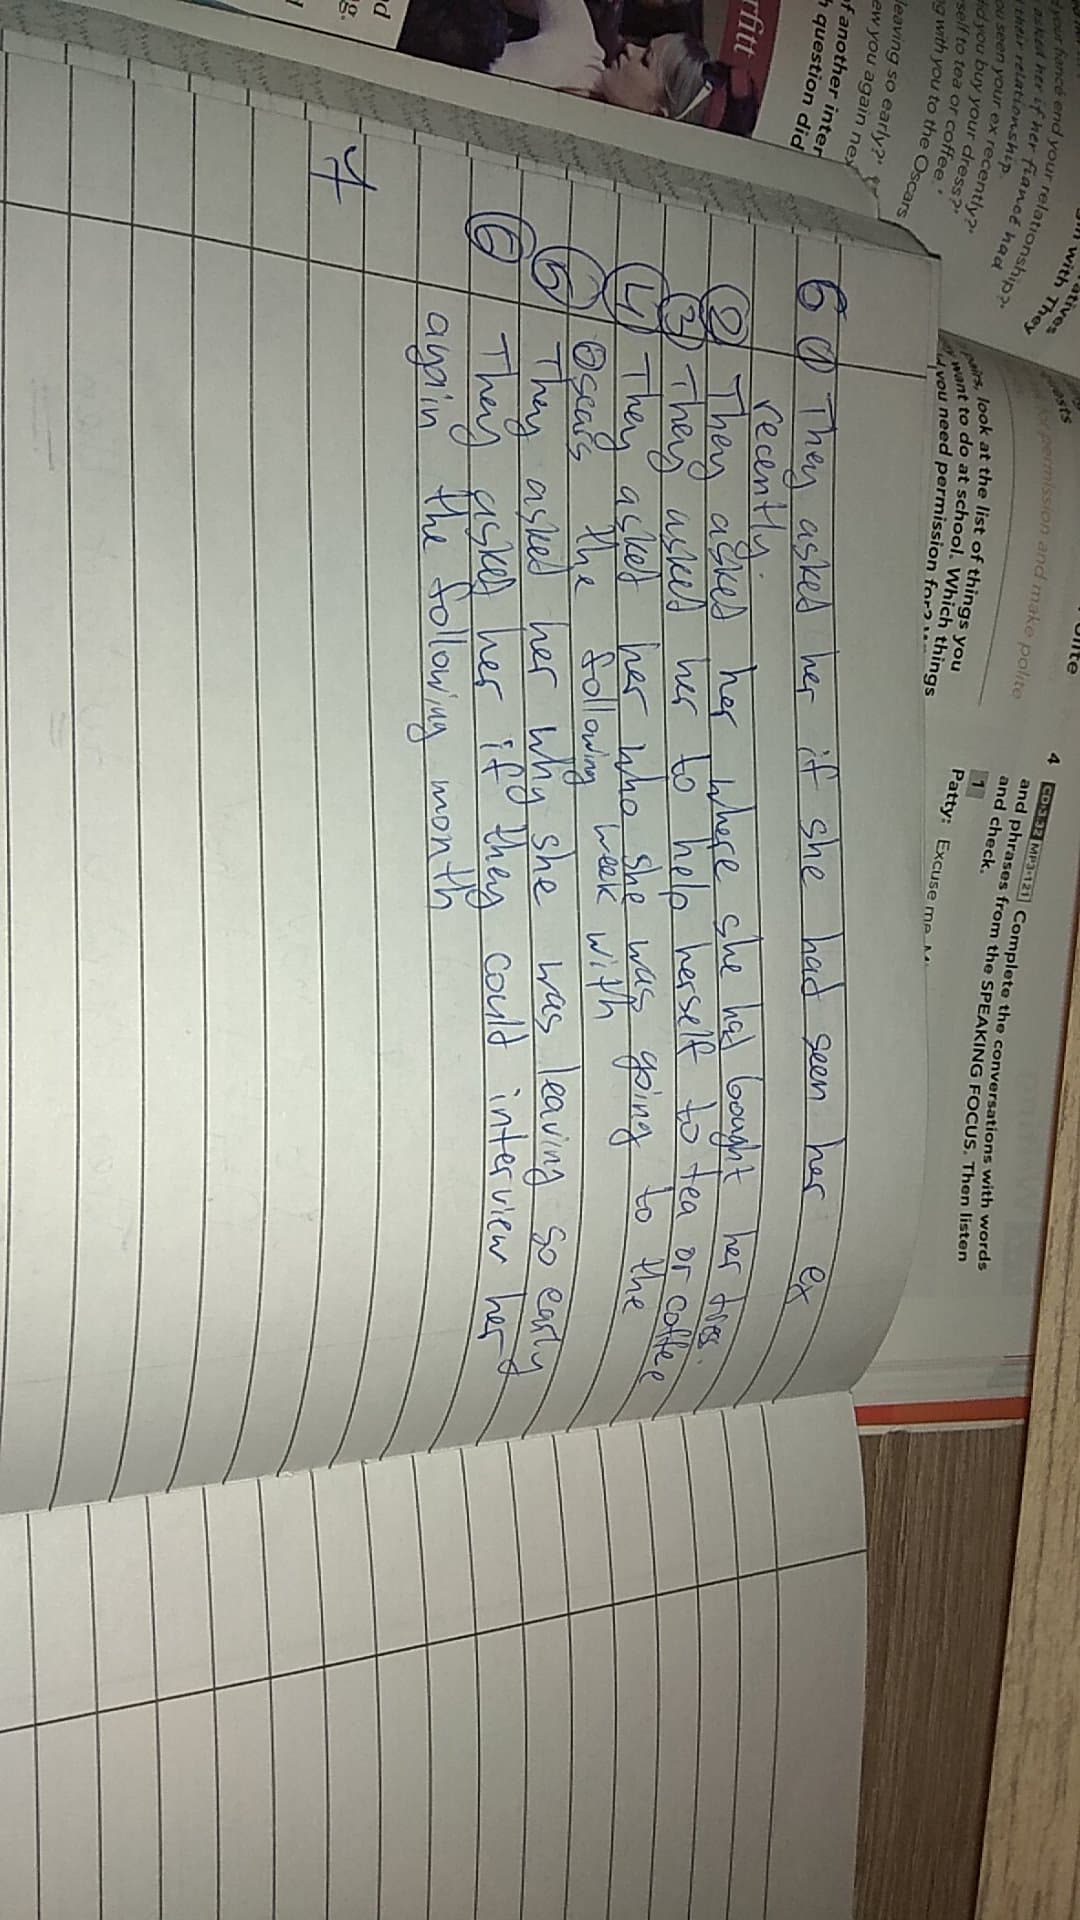 atives
with They
your fiancé end your relationship?'
asked her if her fiancé had
their relationship.
ou seen your ex recently?'
did you buy your dress?'
self to tea or coffee.'
g with you to the Oscars
leaving so early?'
ew you again
of another inter
question did
rfitt
permission and make polite
pairs, look at the list of things you
want to do at school. Which things
you need permission for?
4 CD•3.32 MP3•121 Complete the conversations with words
and phrases from the SPEAKING FOCUS. Then listen
and check.
1
Patty: Excuse me
6 1 They asked her if she had seen her ex
recently.
2 They asked her where she had bought her dress.
3 They asked her to help herself to tea or coffee
4 They asked her who she was going to the
Oscars the following week with
5 They asked her why she was leaving so early
6 They asked her if they could interview her
again the following month
7